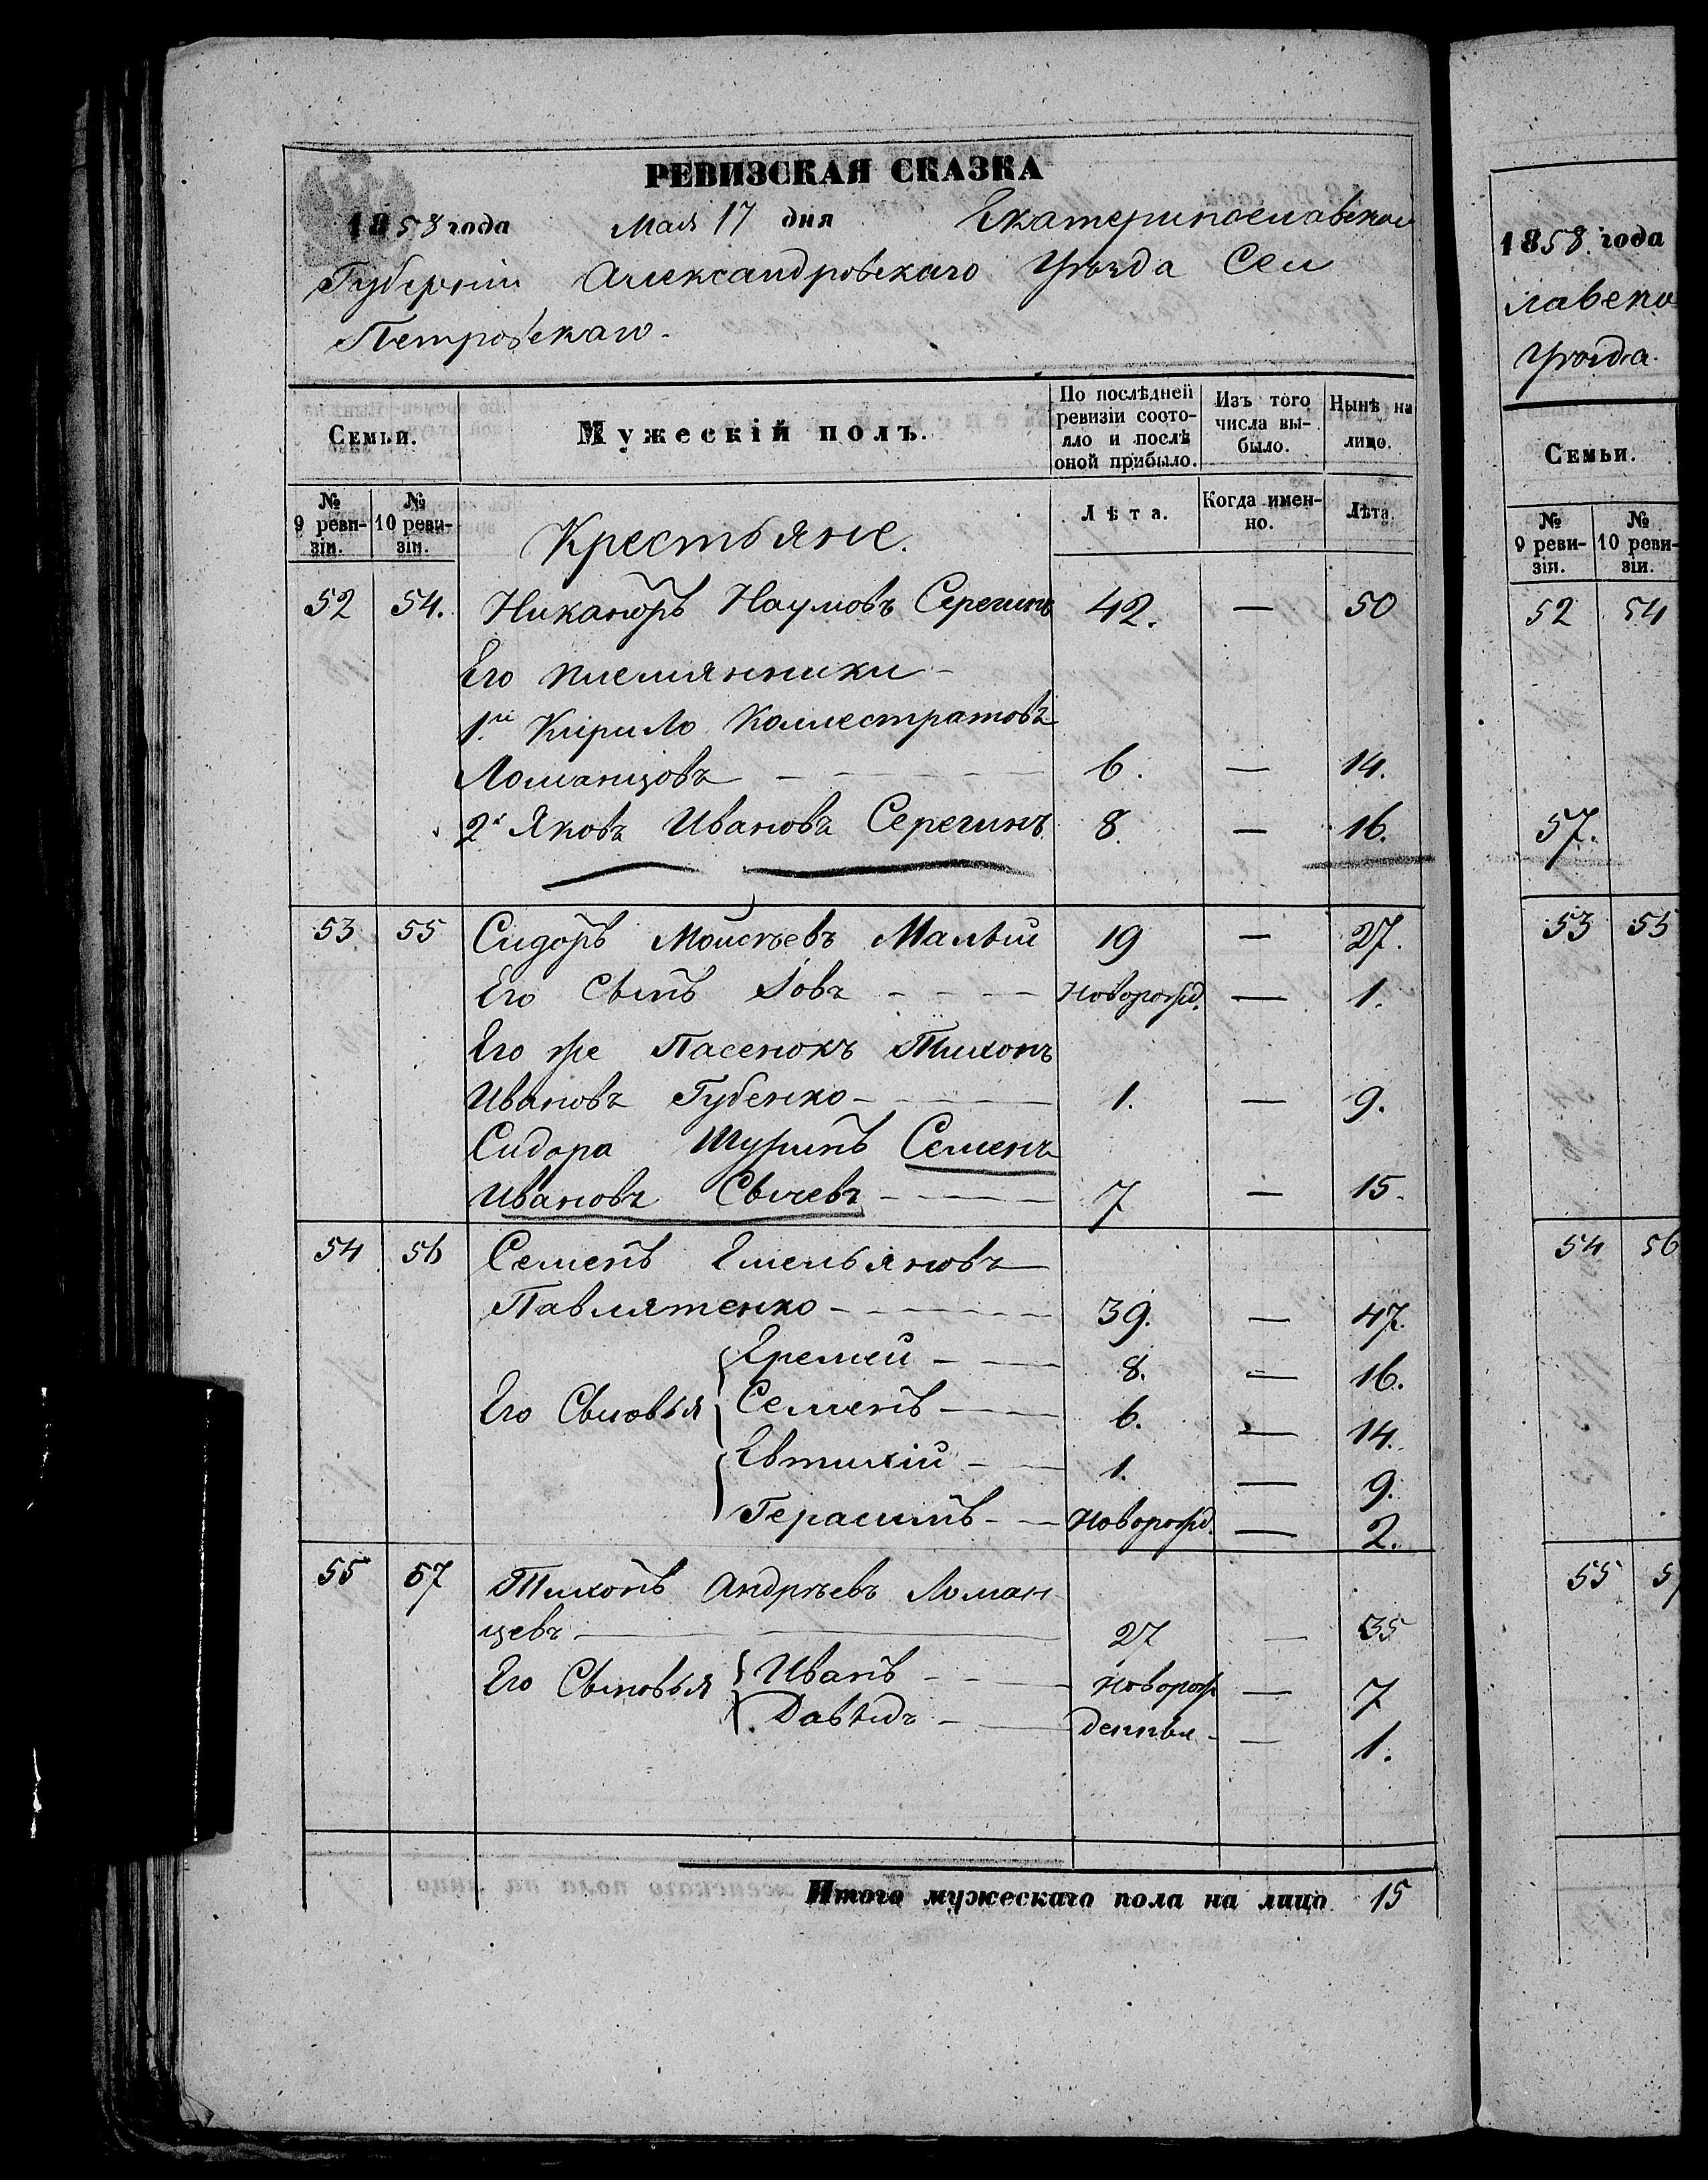 РЕВИЗСКАЯ СКАЗКА
1858 года Мая 17 дня Екатеринославской
Губерніи Александровскаго Уѣзда Села
Петровскаго.
Семьи.
Мужескій полъ.
По послѣдней ревизіи состояло и послѣ оной прибыло.
Изъ того числа выбыло.
Нынѣ на лицо.
№ 9 ревизіи.
№ 10 ревизіи.
Крестьяне.
Лѣта.
Когда именно.
Лѣта.
52 54. Никаноръ Наумовъ Серегинъ 42. — 50
Его племянники —
1й Кирило Каллестратовъ
Ломанцовъ — 6. — 14.
2й Яковъ Ивановъ Серегинъ 8. — 16.
53 55 Сидоръ Моисѣевъ Малый 19 — 27.
Его Сынъ Іовъ — Новорожд. — 1.
Его же Пасенокъ Тихонъ
Ивановъ Губенко — 1. — 9.
Сидора Шуринъ Семенъ
Ивановъ Сычевъ — 7 — 15.
54 56 Семенъ Емельяновъ
Павлятенко — 39. — 47.
Еремей — 8. — 16.
Его Сыновья Семенъ — 6. — 14.
Евтихій — 1. — 9.
Герасимъ — Новорожд. — 2.
55 57 Тихонъ Андрѣевъ Ломан
цевъ — 27 — 35
Его Сыновья Иванъ — Новорож — 7
Давыдъ — денные — 1.
Итого мужескаго пола на лицо 15
1858. года
лавско
Уѣзда.
Семьи.
№ 9 ревизіи.
№ 10 ревизіи.
52 54
57.
53 55
54 56
55 5